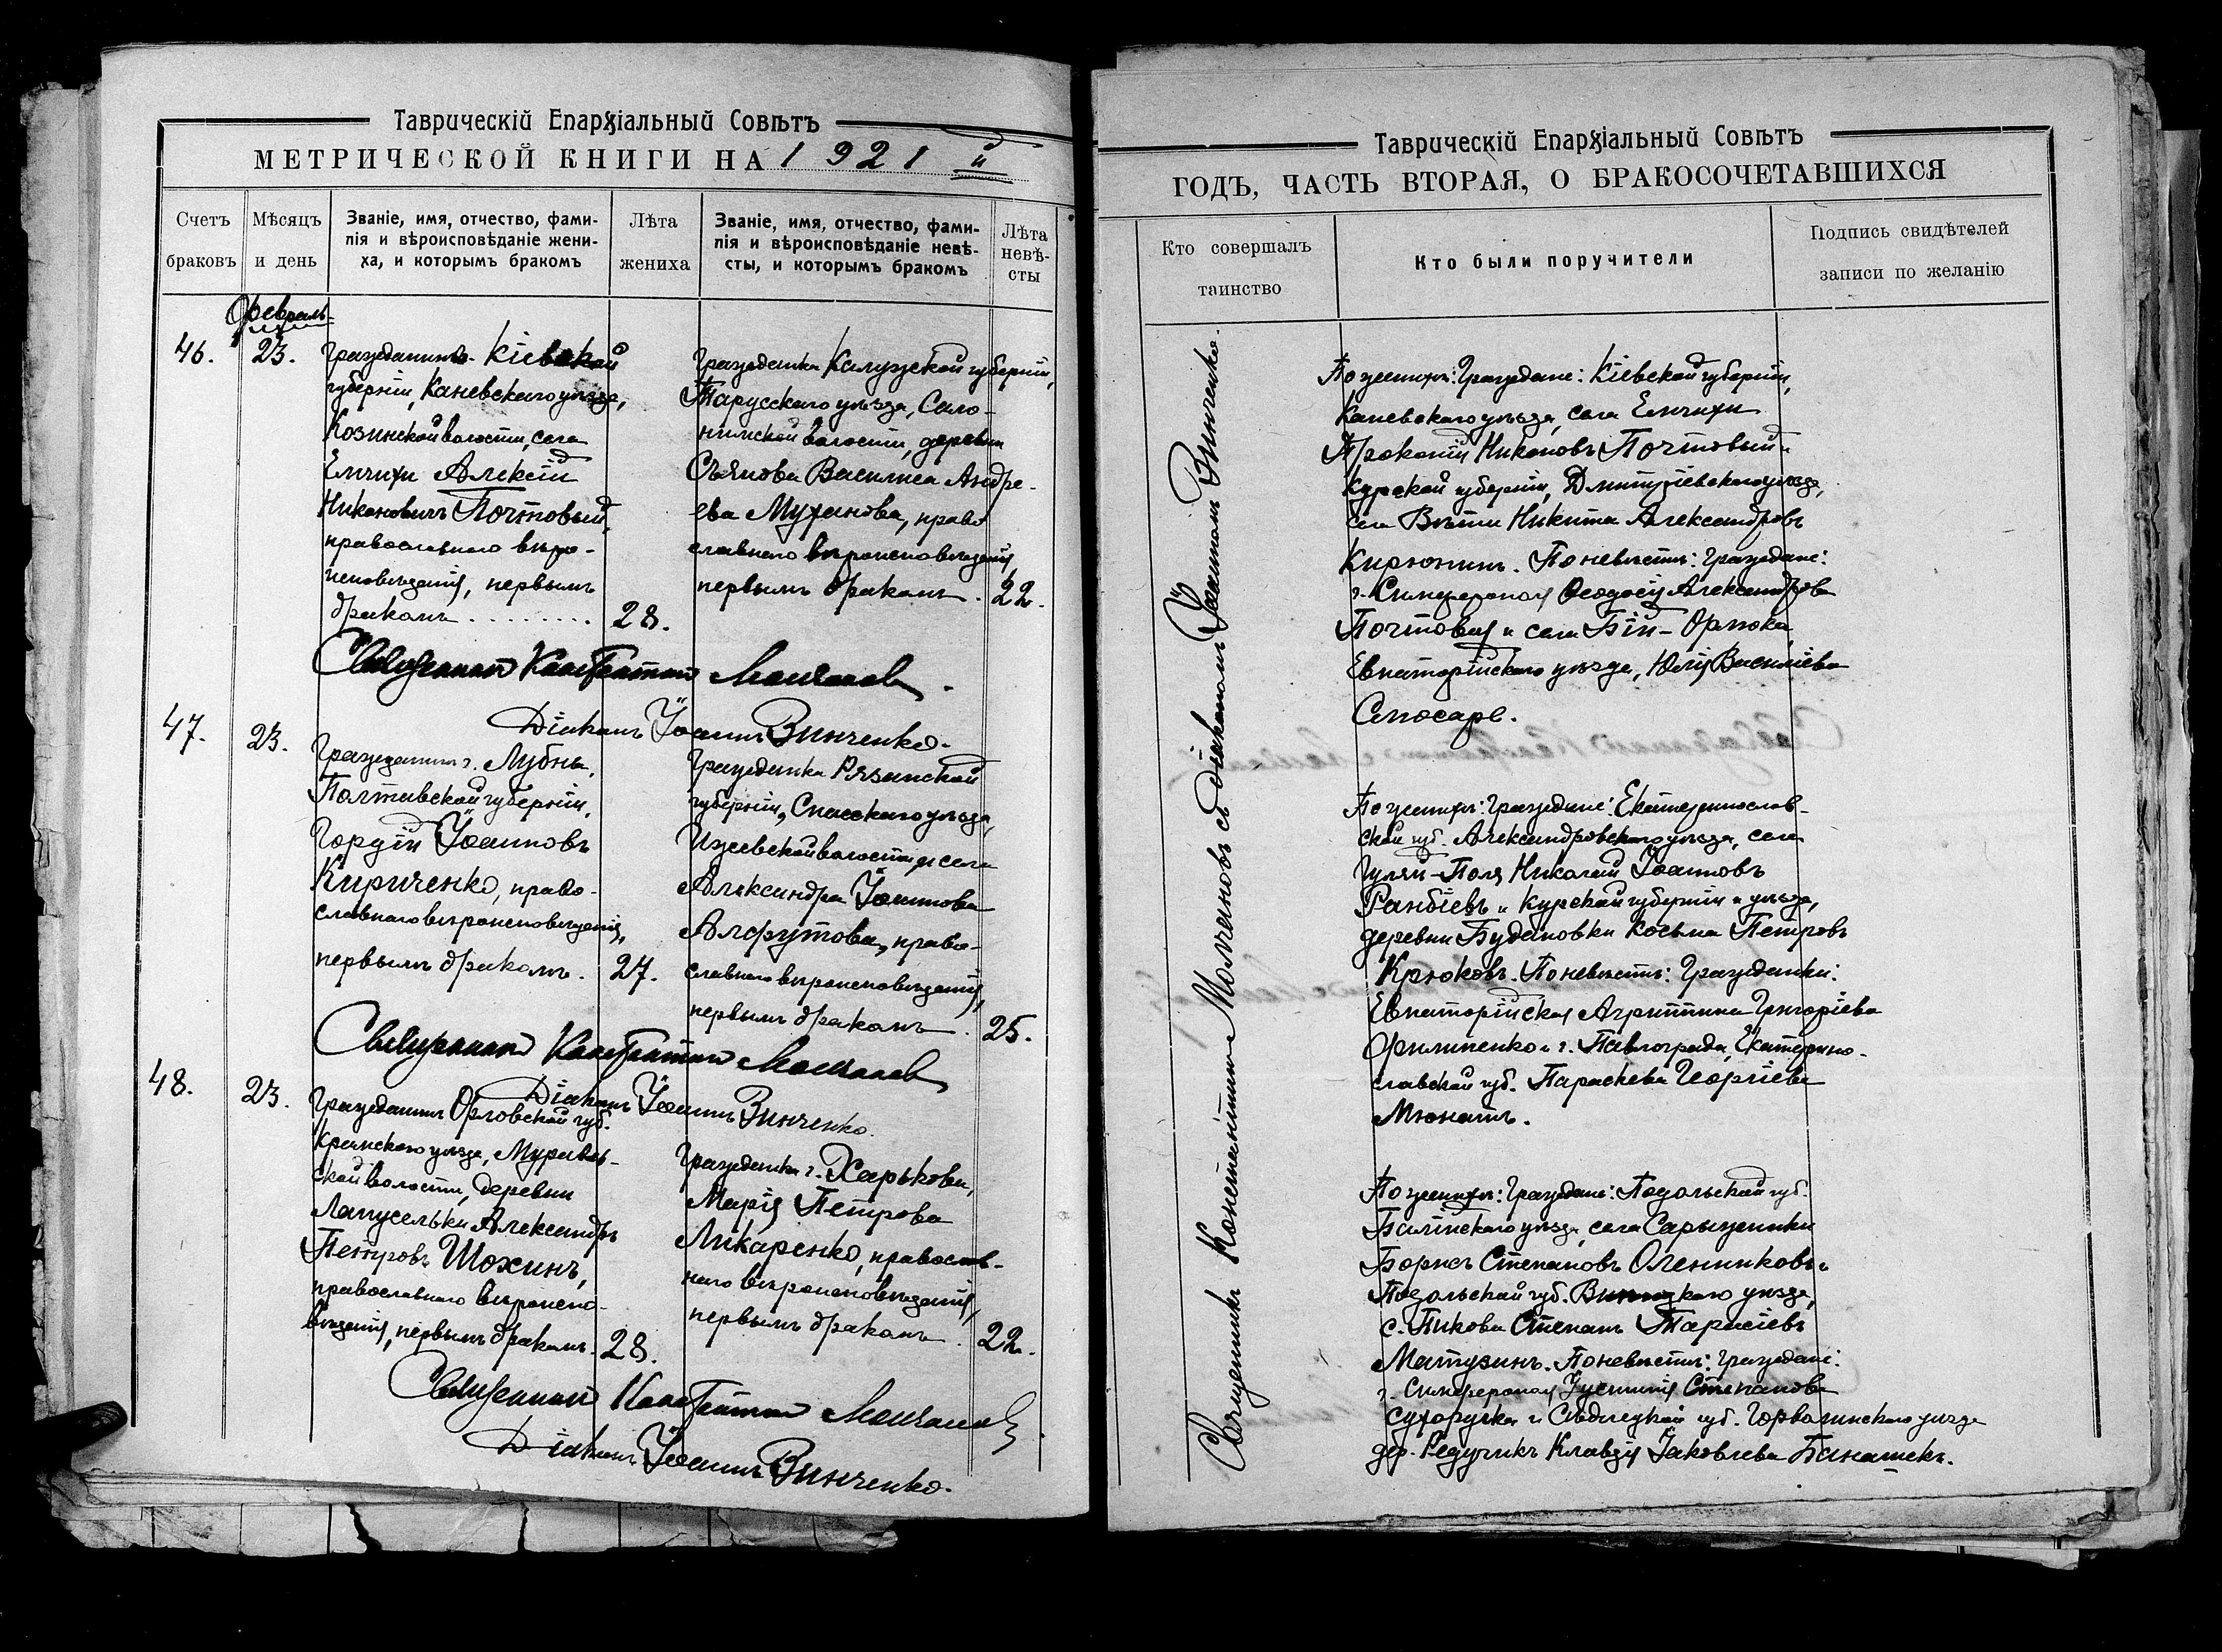 Таврическій Епархіальный Совѣтъ
МЕТРИЧЕСКОЙ КНИГИ НА 1921 й
Счетъ браковъ
Мѣсяцъ и день
Званіе, имя, отчество, фами-
лія и вѣроисповѣданіе жени-
ха, и которымъ бракомъ
Лѣта жениха
Званіе, имя, отчество, фами-
лія и вѣроисповѣданіе невѣ-
сты, и которымъ бракомъ
Лѣта невѣ-
сты
Февраль
46. 23.
Гражданинъ Кіевской
губерніи, Каневскаго уѣзда,
Козинской волости, села
Емчихи Алексій
Никоновичъ Почтовый,
православнаго вѣро-
исповѣданія, первымъ
бракомъ ........ 28.
Гражданка Калужской губерніи,
Тарусскаго уѣзда, Сало-
нимской волости, деревни
Съянова Василиса Андре-
ева Муханова, право
славнаго вѣроисповѣданія,
первымъ бракомъ . 22.
Священникъ Константинъ Молчановъ.
Діаконъ Іоаннъ Винченко.
47. 23.
Гражданинъ г. Лубны,
Полтавской губерніи,
Гордій Іоанновъ
Кириченко, право-
славнаго вѣроисповѣданія,
первымъ бракомъ. 27.
Гражданка Рязанской
губерніи, Спасскаго уѣзда,
Ижевской волости и села
Александра Іоаннова
Алфутова, право-
славнаго вѣроисповѣданія,
первымъ бракомъ . 25.
Священникъ Константинъ Молчановъ
Діаконъ Іоаннъ Винченко.
48. 23.
Гражданинъ Орловской губ.
Кромскаго уѣзда, Муравль-
ской волости, деревни
Лапусельки Александръ
Петровъ Шохинъ,
православнаго вѣроиспо-
вѣданія, первымъ бракомъ. 28.
Гражданка г. Харькова,
Марія Петрова
Ликаренко, православ-
наго вѣроисповѣданія,
первымъ бракомъ . 22.
Священникъ Константинъ Молчановъ
Діаконъ Іоаннъ Винченко.
Таврическій Епархіальный Совѣтъ
ГОДЪ, ЧАСТЬ ВТОРАЯ, О БРАКОСОЧЕТАВШИХСЯ
Кто совершалъ
таинство
Кто были поручители
Подпись свидѣтелей
записи по желанію
Священникъ Константинъ Молчановъ съ діакономъ Іоанномъ Винченко.
По женихѣ: Граждане: Кіевской губерніи,
Каневскаго уѣзда, села Емчихи
Прокопій Никоновъ Почтовый и
Курской губерніи, Дмитріевскаго уѣзда,
села Вѣти Никита Александровъ
Кирюнинъ. По невѣстѣ: Граждане:
г. Симферополя Ѳеодосія Александрова
Почтовая и села Бій-Орлюка,
Евпаторійскаго уѣзда, Юлія Василіева
Слюсаре.
По женихѣ: Граждане: Екатеринослав-
ской губ. Александровскаго уѣзда, села
Гуляй-Поля Николай Іоанновъ
Ранбіевъ и Курской губерніи и уѣзда,
деревни Будановки Косьма Петровъ
Крюковъ. По невѣстѣ: Гражданки:
Евпаторійская Агриппина Григоріева
Филипенко и г. Павлограда, Екатерино-
славской губ. Параскева Георгіева
Мюнатъ.
По женихѣ: Граждане: Подольской губ.
Балтскаго уѣзда, села Сарыжинки
Борисъ Степановъ Олейниковъ и
Подольской губ. Винницкаго уѣзда,
с. Пикова Степанъ Тарасіевъ
Матузинъ. По невѣстѣ: Граждане:
г. Симферополя Іустинія Степанова
Сухоручка и Сѣдлецкой губ. уѣзда
дер. Редучикъ Клавдія Іаковлева Банашекъ.